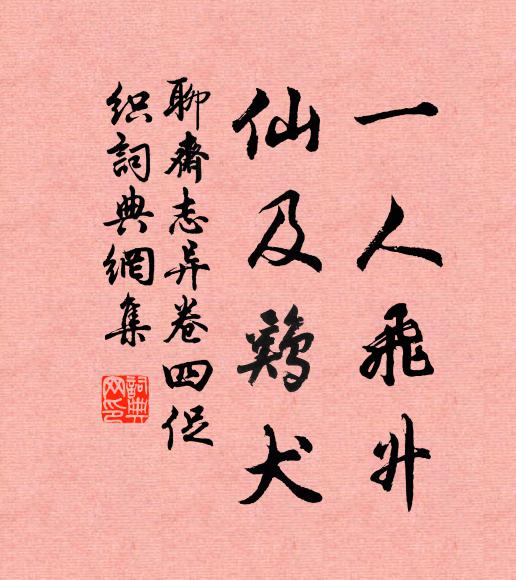 一人飛升
仙及鷄犬
聊齋志异卷四促
织詞典網集
詞典
网印